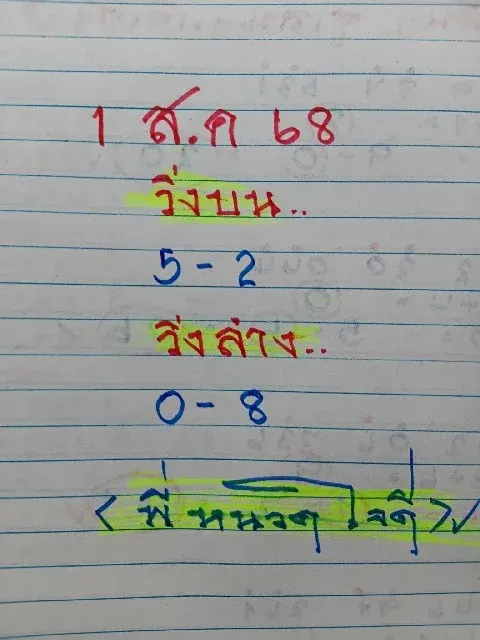 1 ส.ค 68
วิ่งบน..
5 - 2
วิ่งล่าง..
0 - 8
<พี่หนวดใจดี>✓